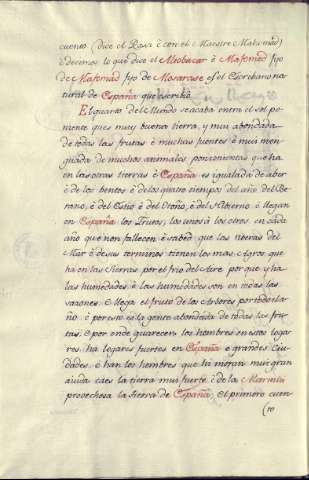 cuento (dice el Rasa è con el Maestre Mahomad)
è decemos lo que dice el Abobacar è Mafomad fijo
de Mafomad fijo de Mosarase
de el Escribano na
tural de España que escribió
El quarto del Mundo se acaba entre el sol po-
niente ques muy buena tierra, y muy abondada
de todas las frutas è muchas fuentes è muy men-
guada de muchos animales ponzonientos que ha
en las otras tierras è España es igualada de abir
è de los bentos è de los quatro tiempos del año del Be-
rano, è del Estio è del Otoño, è del Hibierno è llegan
en España los Frutos, los unos à los otros en cada
año que non fallecen è sabed que las riberas del
Mar è de sus terminos tienen los mas Agros que
ha en las Sierras por el frio del Aire por que y ha
las humedades è las humedades son en todas las
sazones. è llega el fruto de los Arboles por todo el a-
ño è por esto es la gente abondada de todas las fru-
tas. è por ende guarecen los hombres en estos loga-
res, ha logares fuertes en España è grandes Ciu-
dades è han los hombres que hi moran mui gran
aiuda ca es la tierra mui fuerte è de la Marina
provechosa la tierra de España, el primero cuen-
to